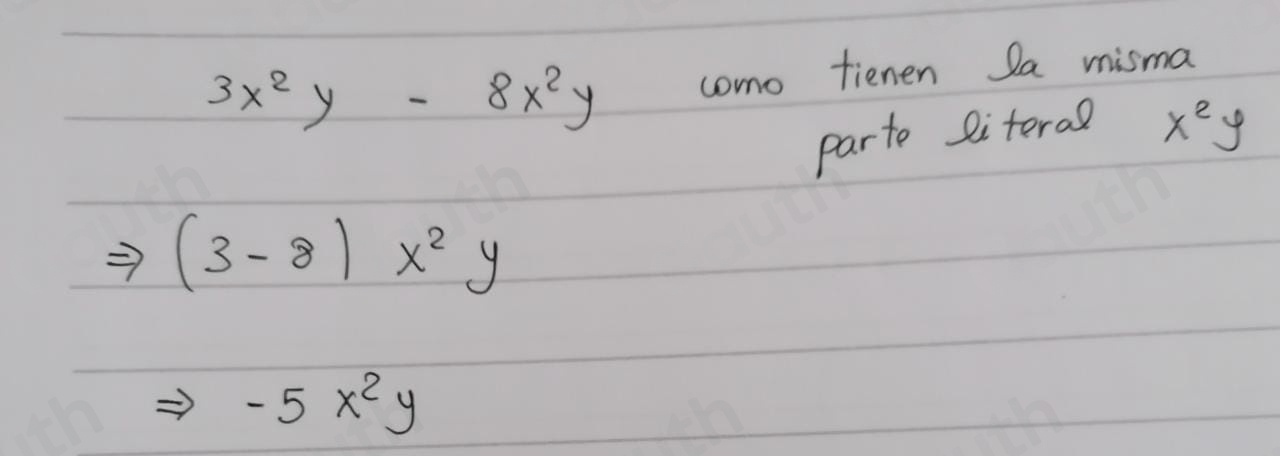 3x² y - 8x² y como tienen la misma
parte literal x² y
⇒ (3 - 8) x² y
⇒ -5 x² y